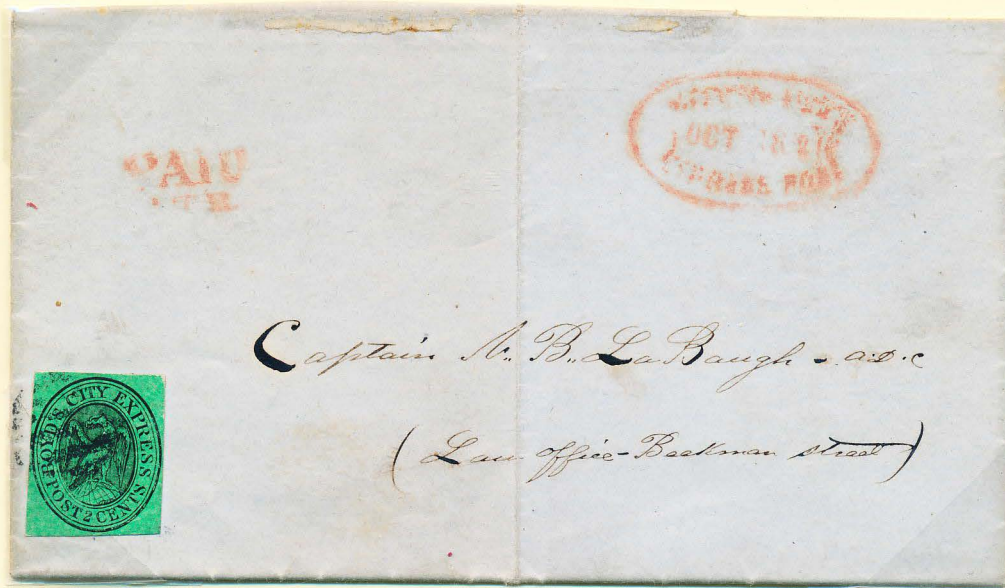 PAID
OCT
EXPRESS POST
Captain N. B. La Baugh - a.d.c
(Law office - Beekman street)
BOYD'S CITY EXPRESS
POST 2 CENTS